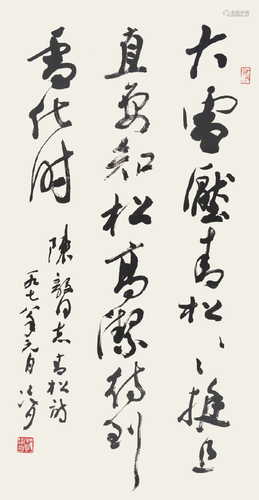 大雪壓青松〻〻挺且
直要知松高潔待到
雪化时
陳毅同志青松詩
一九七八年元月